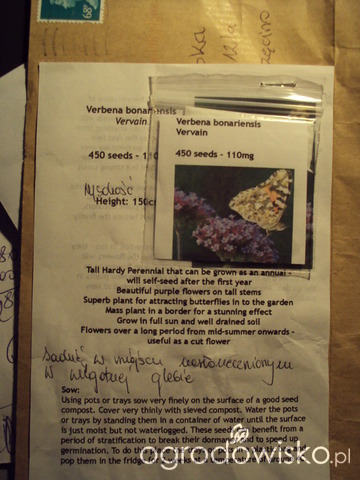 68p
12/a
Verbena bonariensis
Vervain
450 seeds - 110
Wysokość
Height: 150c
Verbena bonariensis
Vervain
450 seeds - 110mg
Tall Hardy Perennial that can be grown as an annual -
will self-seed after the first year
Beautiful purple flowers on tall stems
Superb plant for attracting butterflies in to the garden
Mass plant in a border for a stunning effect
Grow in full sun and well drained soil
Flowers over a long period from mid-summer onwards -
useful as a cut flower
sadzić w miejscu nasłonecznionym
w wilgotnej glebie
Sow:
Using pots or trays sow very finely on the surface of a good seed
compost. Cover very thinly with sieved compost. Water the pots
or trays by standing them in a container of water until the surface
is just moist but not waterlogged. These seeds benefit from a
period of stratification to break their dormancy and to speed up
germination. To do
pop them in the fridge
ogrodowisko.pl